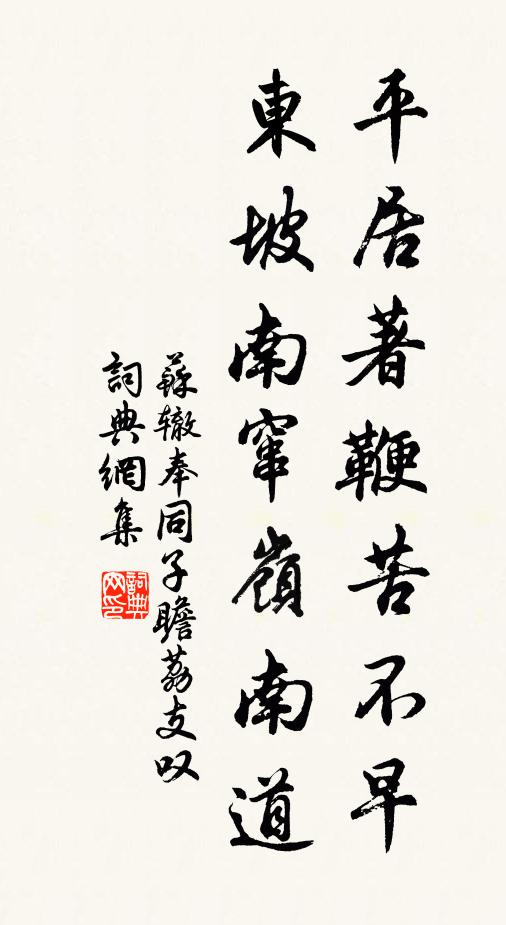 平居著鞭苦不早
東坡南窜嶺南道
蘇辙奉同子瞻荔支叹
詞典網集
詞典网印